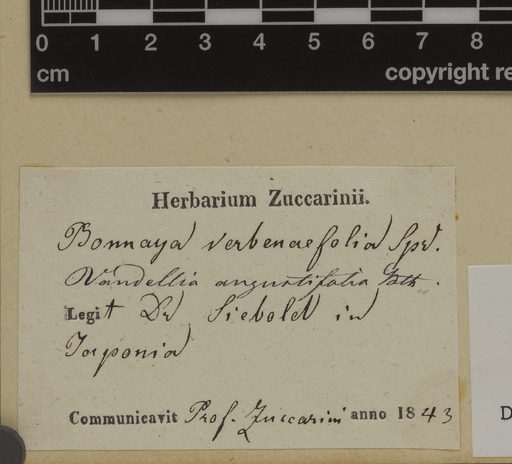 0 1 2 3 4 5 6 7 8
cm copyright re
Herbarium Zuccarinii.
Bonnaya verbenaefolia Spr.
Vandellia angustifolia Bth.
Legit Dr Siebold in
Japonia
Communicavit Prof. Zuccarini anno 1843
D